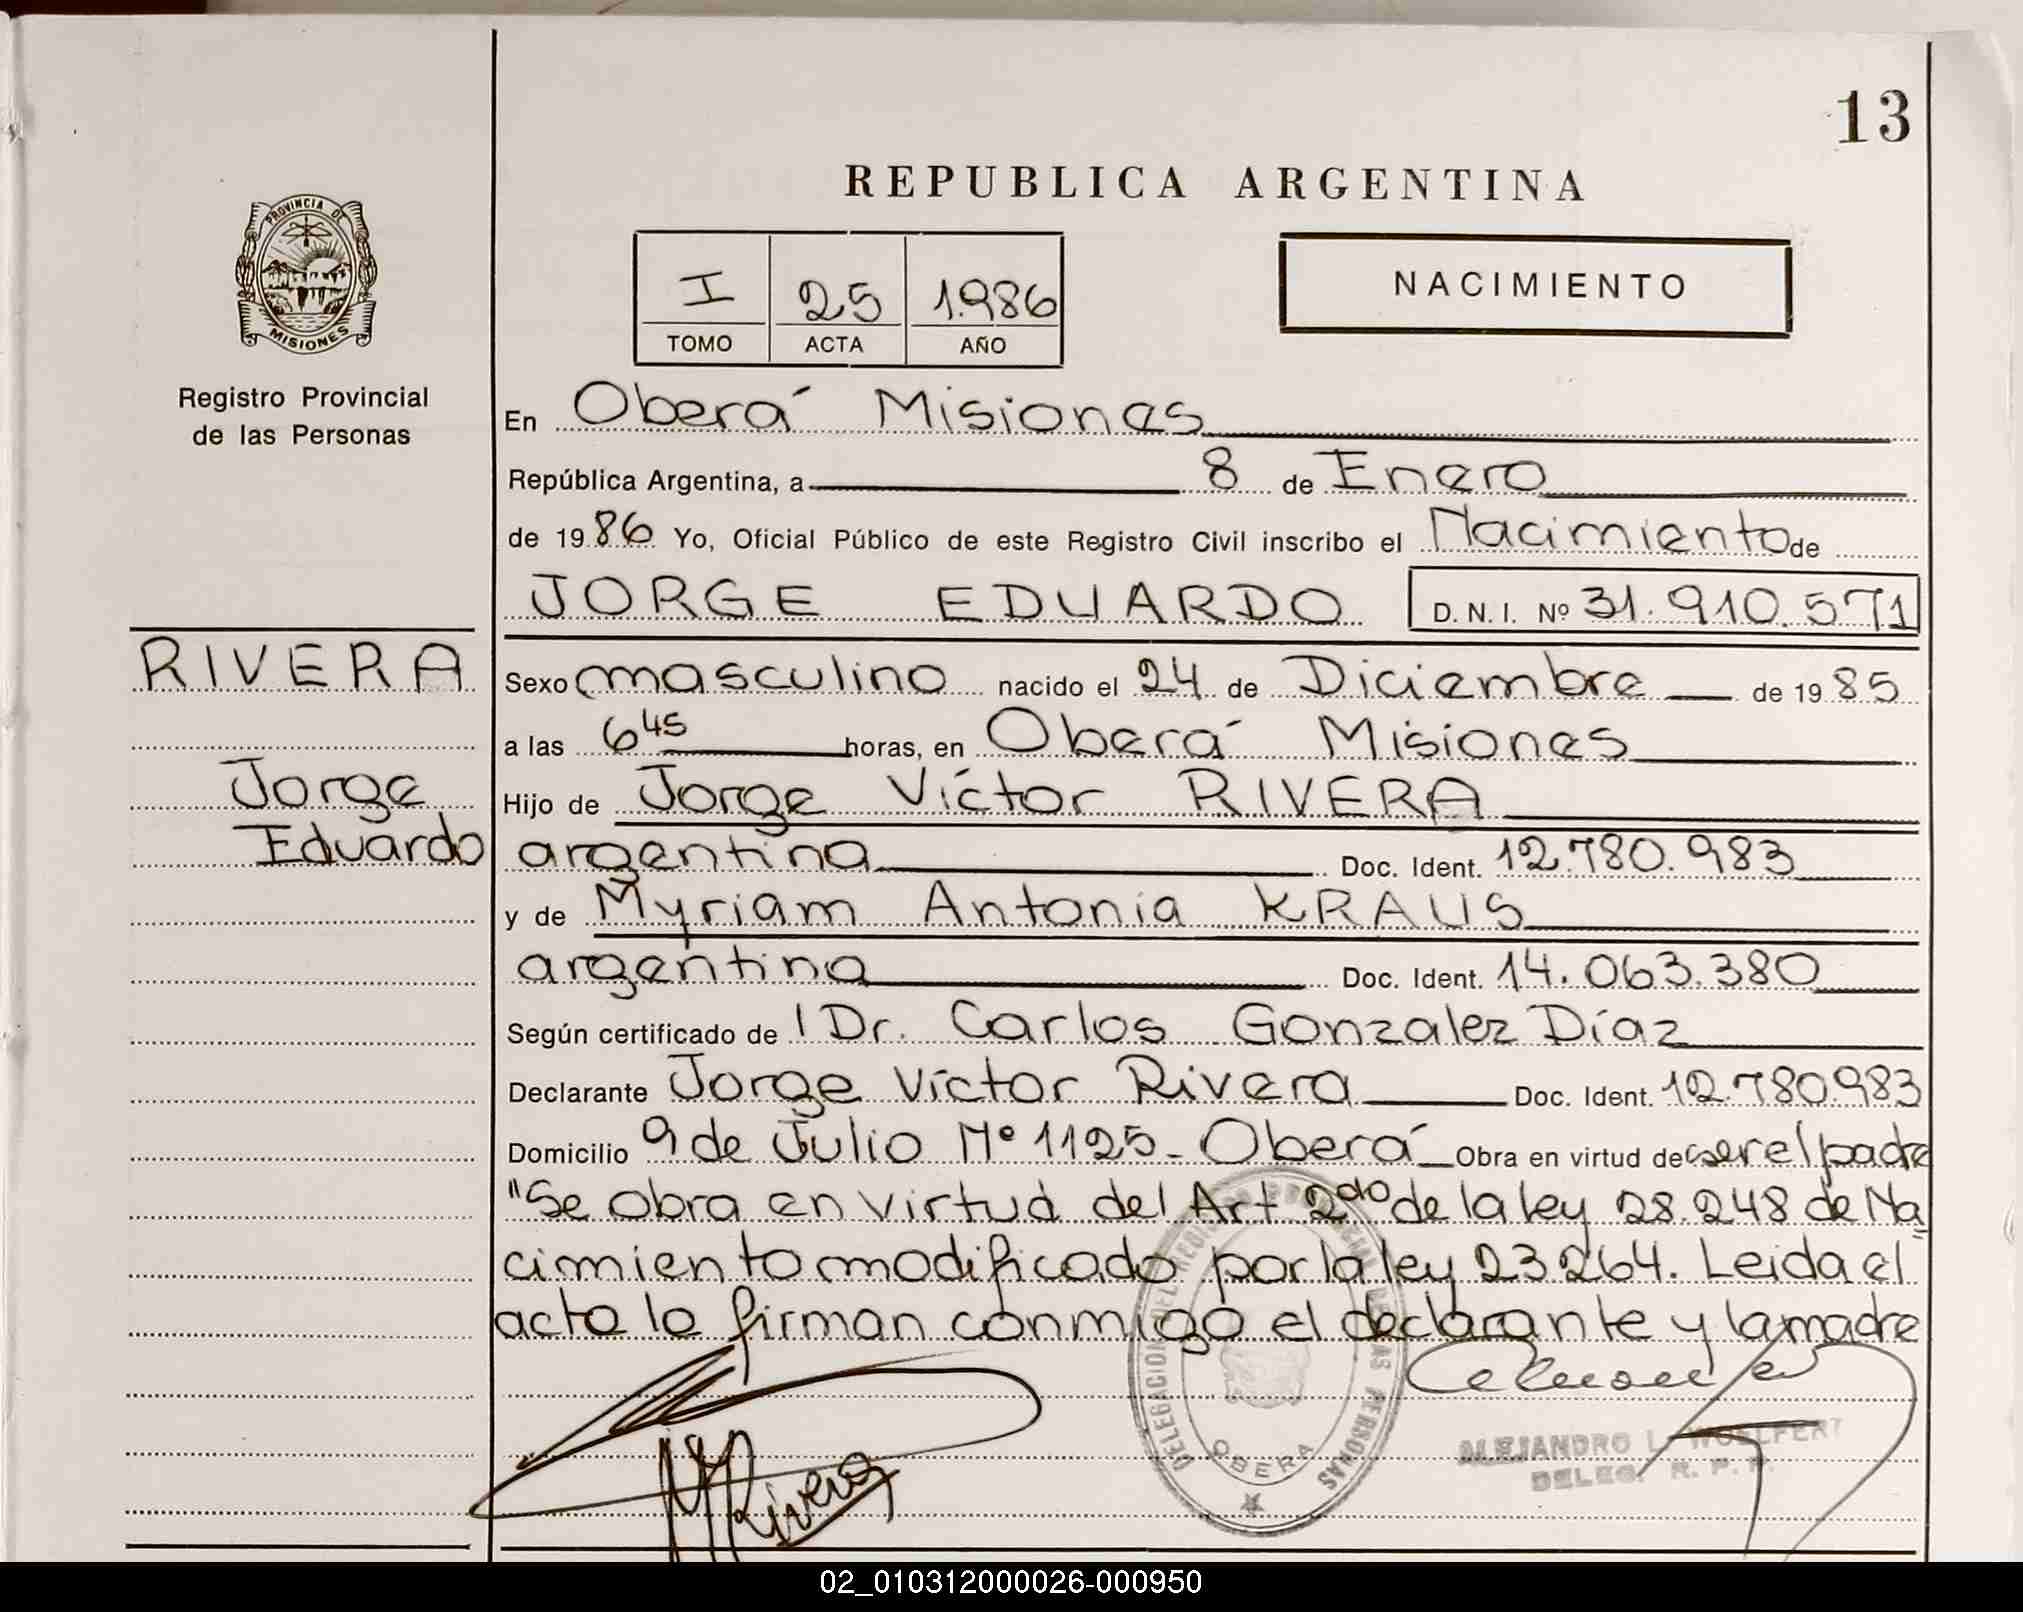 13
REPUBLICA ARGENTINA
PROVINCIA DE
MISIONES
I 25 1.986
TOMO ACTA AÑO
NACIMIENTO
Registro Provincial
de las Personas
En Oberá Misiones
República Argentina, a 8 de Enero
de 1986 Yo, Oficial Público de este Registro Civil inscribo el Nacimiento de
JORGE EDUARDO D. N. I. Nº 31.910.571
RIVERA
Jorge
Eduardo
Sexo masculino nacido el 24 de Diciembre de 1985
a las 6 45 horas, en Oberá Misiones
Hijo de Jorge Víctor RIVERA
argentina Doc. Ident. 12.780.983
y de Myriam Antonia KRAUS
argentina Doc. Ident. 14.063.380
Según certificado de l Dr. Carlos Gonzalez Díaz
Declarante Jorge Víctor Rivera Doc. Ident. 12.780.983
Domicilio 9 de Julio Nº 1125 - Oberá Obra en virtud de ser el padre
"Se obra en virtud del Art 2do de la ley 28.248 de Na
cimiento modificado por la ley 23264. Leida el
acta lo firman conmigo el declarante y la madre
DELEGACION DEL REGISTRO PROVINCIAL DE LAS PERSONAS
OBERA
ALEJANDRO L. WOELFERT
DELEG. R. P. P.
MRivera
02_010312000026-000950